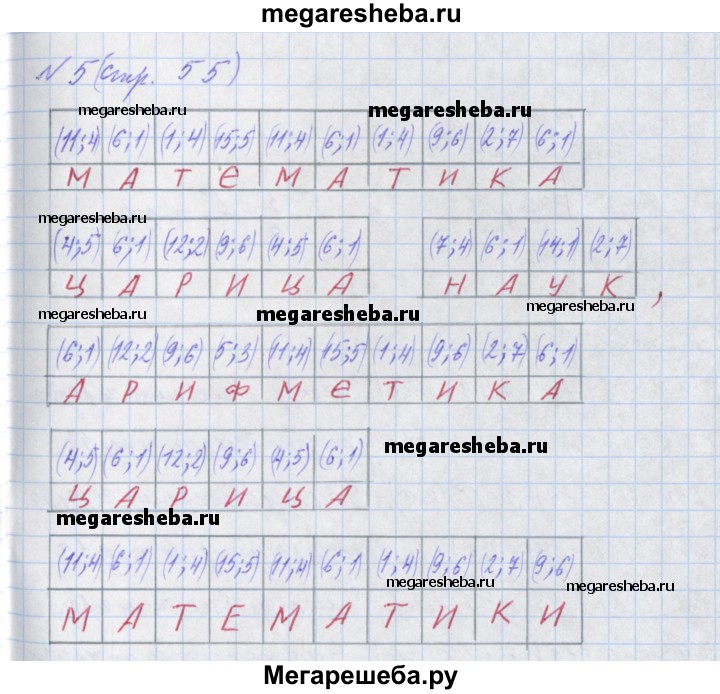 megaresheba.ru
№ 5 (стр. 55)
megaresheba.ru megaresheba.ru
(11;4) (6;1) (1;4) (15;5) (11;4) (6;1) (1;4) (9;6) (2;7) (6;1)
М А Т Е М А Т И К А
megaresheba.ru
(4;5) (6;1) (12;2) (9;6) (4;5) (6;1) (7;4) (6;1) (14;1) (2;7)
Ц А Р И Ц А Н А У К ,
megaresheba.ru megaresheba.ru megaresheba.ru
(6;1) (12;2) (9;6) (5;3) (11;4) (15;5) (1;4) (9;6) (2;7) (6;1)
А Р И Ф М Е Т И К А
megaresheba.ru
(4;5) (6;1) (12;2) (9;6) (4;5) (6;1)
Ц А Р И Ц А
megaresheba.ru
(11;4) (6;1) (1;4) (15;5) (11;4) (6;1) (1;4) (9;6) (2;7) (9;6)
megaresheba.ru megaresheba.ru
М А Т Е М А Т И К И
Мегарешеба.ру